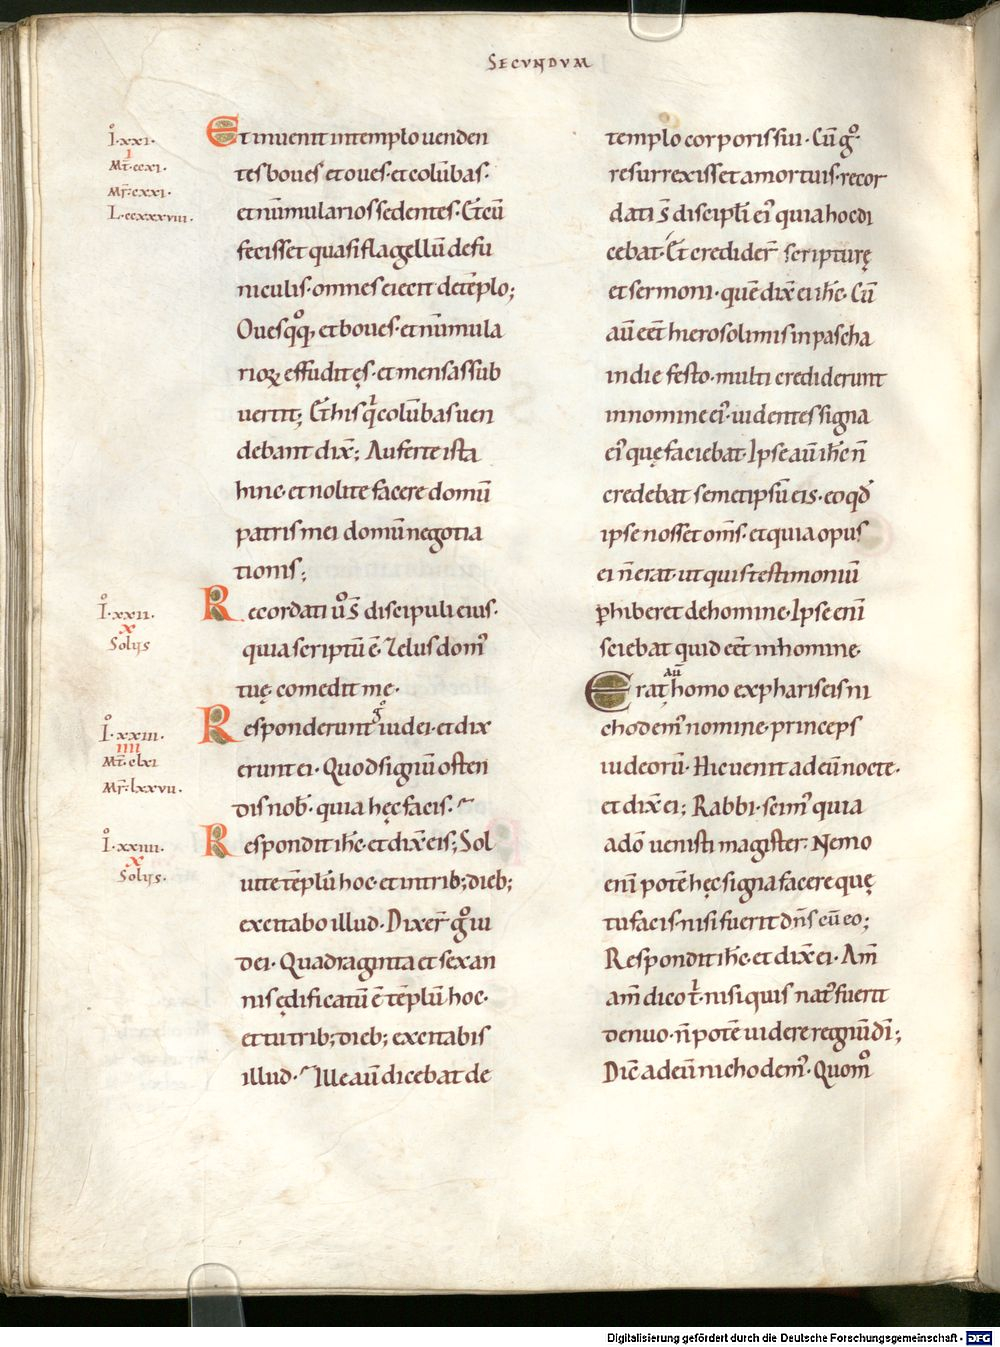 SECUNDUM
I̊·xxi·
i
Mt̄·ccxi·
Mr̄·cxxi·
L·ccxxxviii·
Et inuenit in templo uenden
tes boues et oues· et colūbas·
et nūmularios sedentes· Et cū
fecisset quasi flagellū de fu
niculis· omnes eiecit de tēplo;
Ouesq̊q; et boues· et nūmula
rioꝝ effudit ęs· et mensas sub
uertit; Et his q̇ colūbas uen
debant dix̄; Auferte ista
hinc· et nolite facere domū
patris mei domū negotia
tionis;
I̊·xxii·
x
Solꝰ
Recordati ů s̄ discipuli eius·
quia scriptū ē· Zelus domꝰ
tuę comedit me·
I̊·xxiii·
iiii
Mt̄·clxi
Mr̄·lxxvii·
Responderunt g̊ iudei· et dix
erunt ei· Quod signū osten
dis nob̄· quia hęc facis·
I̊·xxiiii·
x
Solꝰ·
Respondit ih̄c· et dix̄ eis; Sol
uite tēplū hoc· et in trib; dieb;
excitabo illud· Dixer̄ g̊ iu
dei· Quadraginta et sex an
nis ędificatū ē tēplū hoc·
et tu trib; dieb; excitabis
illud· Ille aū dicebat de
templo corporis sui· Cū g̊
resurrexisset a mortuis· recor
dati s̄ discipl̄i eiꝰ quia hoc di
cebat· Et credider̄ scripturę
et sermoni· quē dix̄ ei ih̄c· Cū
aū eēt hierosolimis in pascha
in die festo· multi crediderunt
in nomine eiꝰ· uidentes signa
eiꝰ quę faciebat· Ipse aū ih̄c n̄
credebat semetipsū eis· eo qđ
ipse nosset om̄s· et quia opus
ei n̄ erat· ut quis testimoniū
ꝑhiberet de homine· Ipse enī
sciebat quid eēt in homine·
Erat aū homo ex phariseis ni
chodemꝰ nomine· princeps
iudeorū· Hic uenit ad eū nocte·
et dix̄ ei; Rabbi· scimꝰ quia
a dō uenisti magister· Nemo
enī potē hęc signa facere quę
tu facis· nisi fuerit dn̄s cū eo;
Respondit ih̄c· et dix̄ ei· Am̄
am̄ dico t̄· nisi quis natꝰ fuerit
denuo· n̄ potē uidere regnū dī;
Dic̄ ad eū nichodemꝰ· Quom̊
Digitalisierung gefördert durch die Deutsche Forschungsgemeinschaft - DFG